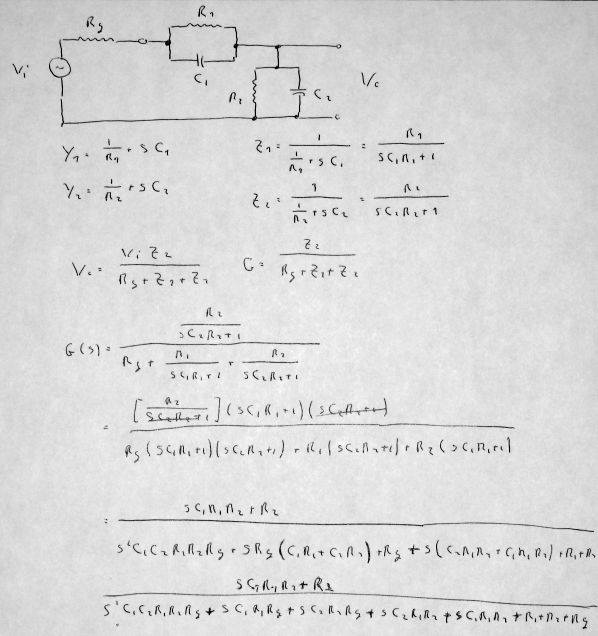 R₁
Rg
Vi
C₁
R₂
C₂
Vo
Y₁ = 1/R₁ + sC₁
Z₁ = 1/(1/R₁ + sC₁) = R₁/(sC₁R₁+1)
Y₂ = 1/R₂ + sC₂
Z₂ = 1/(1/R₂ + sC₂) = R₂/(sC₂R₂+1)
Vo = Vi Z₂/(Rg + Z₁ + Z₂)
G = Z₂/(Rg + Z₁ + Z₂)
G(s) = (R₂/(sC₂R₂+1))/(Rg + R₁/(sC₁R₁+1) + R₂/(sC₂R₂+1))
= [R₂/(sC₂R₂+1)](sC₁R₁+1)(sC₂R₂+1)/(Rg(sC₁R₁+1)(sC₂R₂+1) + R₁(sC₂R₂+1) + R₂(sC₁R₁+1))
= (sC₁R₁R₂ + R₂)/(s²C₁C₂R₁R₂Rg + sRg(C₁R₁ + C₂R₂) + Rg + s(C₂R₁R₂ + C₁R₁R₂) + R₁ + R₂)
(sC₁R₁R₂ + R₂)/(s²C₁C₂R₁R₂Rg + sC₁R₁Rg + sC₂R₂Rg + sC₂R₁R₂ + sC₁R₁R₂ + R₁ + R₂ + Rg)